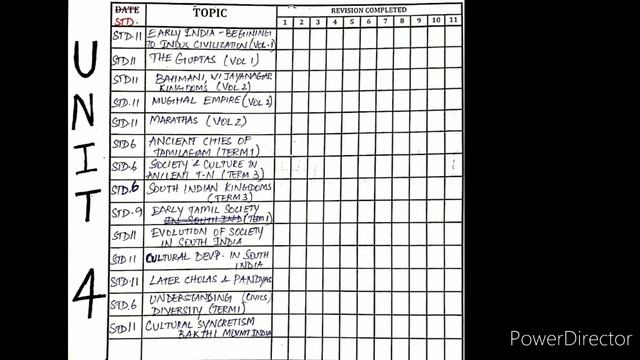 DATE TOPIC REVISION COMPLETED
STD. 1 2 3 4 5 6 7 8 9 10 11
UNIT 4
STD.11 EARLY INDIA - BEGINING
TO INDUS CIVILIZATION (VOL-1)
STD11 THE GUPTAS (VOL 1)
STD11 BAHMANI, VIJAYANAGAR
KINGDOMS (VOL 2)
STD.11 MUGHAL EMPIRE (VOL 2)
STD.11 MARATHAS (VOL 2)
STD6 ANCIENT CITIES OF
TAMILAGAM (TERM1)
STD-6 SOCIETY & CULTURE IN
ANCIENT T.N (TERM 3)
STD.6 SOUTH INDIAN KINGDOMS
(TERM3)
STD-9 EARLY TAMIL SOCIETY
(TERM1)
STD11 EVOLUTION OF SOCIETY
IN SOUTH INDIA
STD11 CULTURAL DEVP. IN SOUTH
INDIA
STD-11 LATER CHOLAS & PANDYAS
STD.6 UNDERSTANDING (CIVICS)
DIVERSITY (TERM1)
STD11 CULTURAL SYNCRETISM
BAKTHI MVMT INDIA
PowerDirector